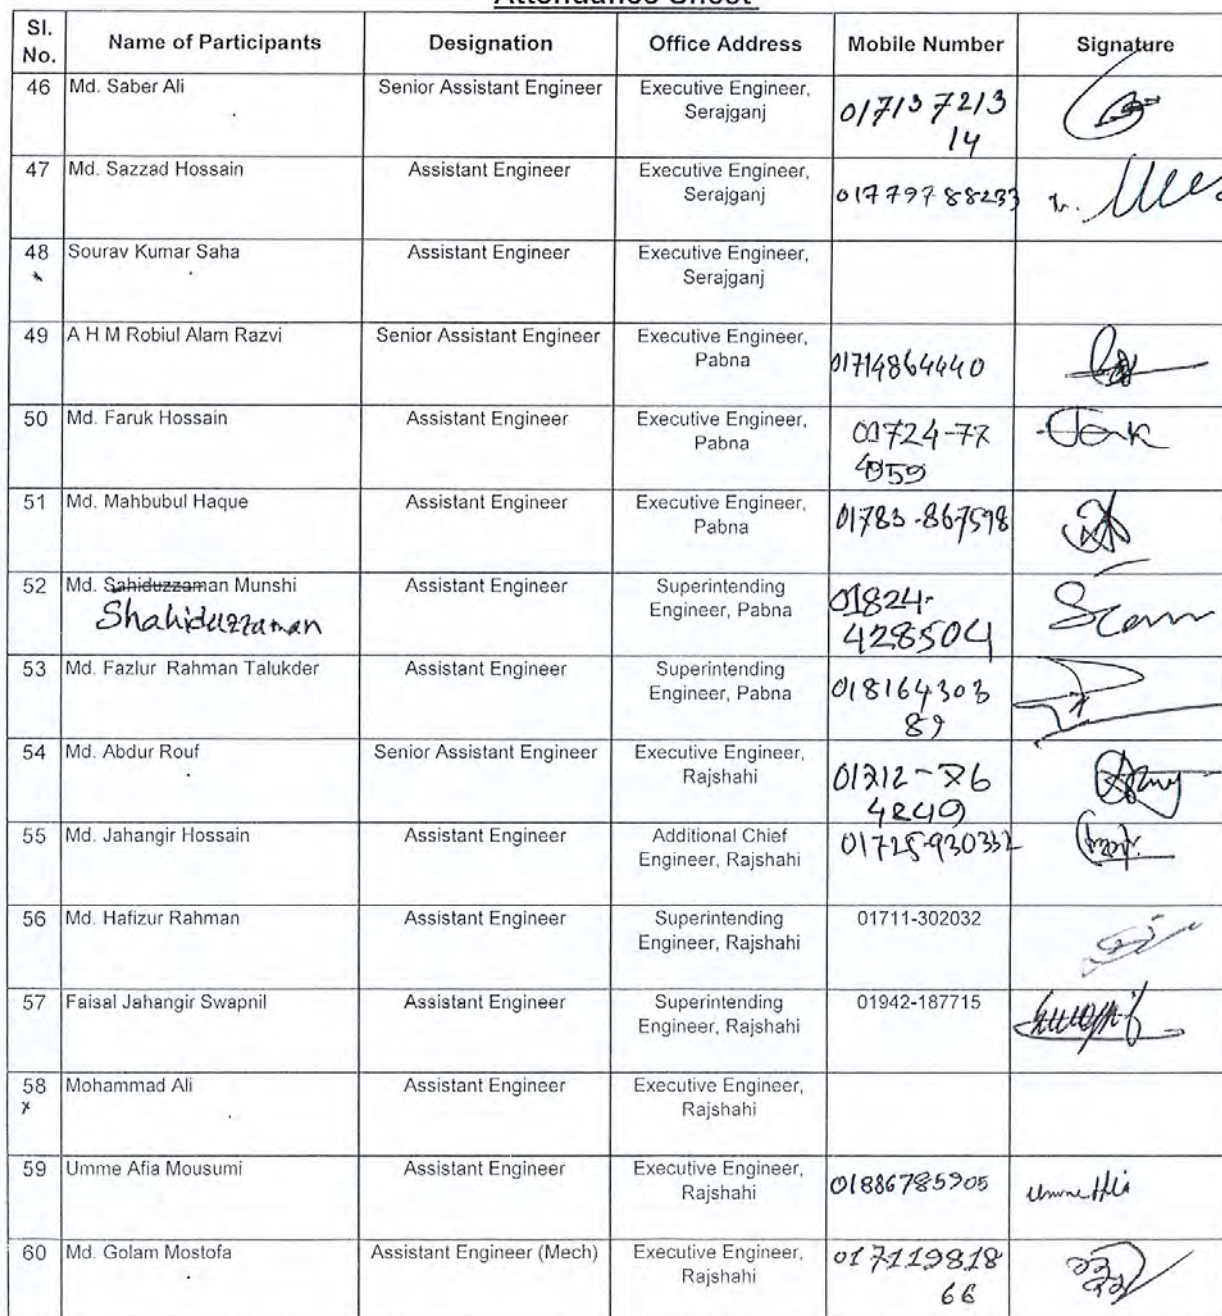 Attendance Sheet
Sl. No. Name of Participants Designation Office Address Mobile Number Signature
46 Md. Saber Ali Senior Assistant Engineer Executive Engineer, 01713 7213
Serajganj 14
47 Md. Sazzad Hossain Assistant Engineer Executive Engineer,
Serajganj 01779788233
48 Sourav Kumar Saha Assistant Engineer Executive Engineer,
Serajganj
49 A H M Robiul Alam Razvi Senior Assistant Engineer Executive Engineer,
Pabna 01714864440
50 Md. Faruk Hossain Assistant Engineer Executive Engineer, 01724-77
Pabna 4959
51 Md. Mahbubul Haque Assistant Engineer Executive Engineer, 01783-867598
Pabna
52 Md. Sahiduzzaman Munshi Assistant Engineer Superintending 01824-
Shahiduzzaman Engineer, Pabna 428504
53 Md. Fazlur Rahman Talukder Assistant Engineer Superintending 018164303
Engineer, Pabna 89
54 Md. Abdur Rouf Senior Assistant Engineer Executive Engineer, 01712-76
Rajshahi
55 Md. Jahangir Hossain Assistant Engineer Additional Chief 01725-930332
Engineer, Rajshahi
56 Md. Hafizur Rahman Assistant Engineer Superintending 01711-302032
Engineer, Rajshahi
57 Faisal Jahangir Swapnil Assistant Engineer Superintending 01942-187715
Engineer, Rajshahi
58 Mohammad Ali Assistant Engineer Executive Engineer,
x Rajshahi
59 Umme Afia Mousumi Assistant Engineer Executive Engineer, 01886785905
Rajshahi
60 Md. Golam Mostofa Assistant Engineer (Mech) Executive Engineer, 017119818
Rajshahi 66